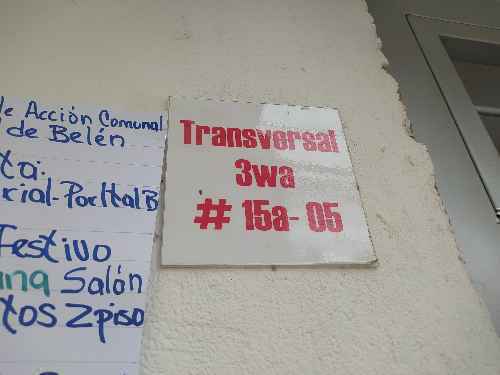 de Acción Comunal
de Belén
ta.
rial-Portal B
Festivo
Salón
tos 2 piso
Transversal
3wa
# 15a-05